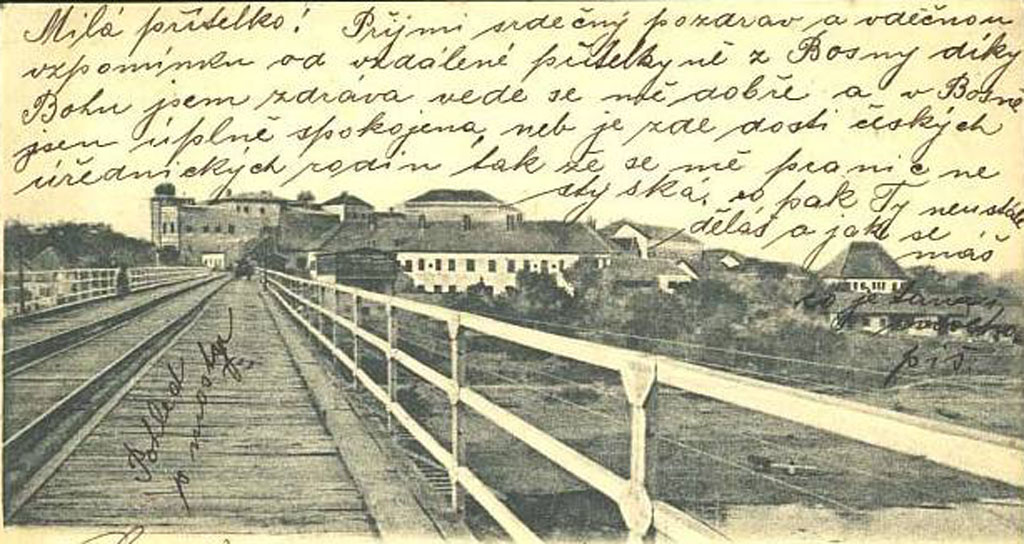 Milá přítelko! Přijmi srdečný pozdrav a vděčnou
vzpomínku od vzdálené přítelkyně z Bosny díky
Bohu jsem zdráva vede se mě dobře a v Bosně
jsem úplně spokojena, neb je zde dosti českých
úřednických rodin tak že se mě pranic ne
stýská, co pak Ty neustále
děláš a jak se
máš
co je
piš.
Pohled